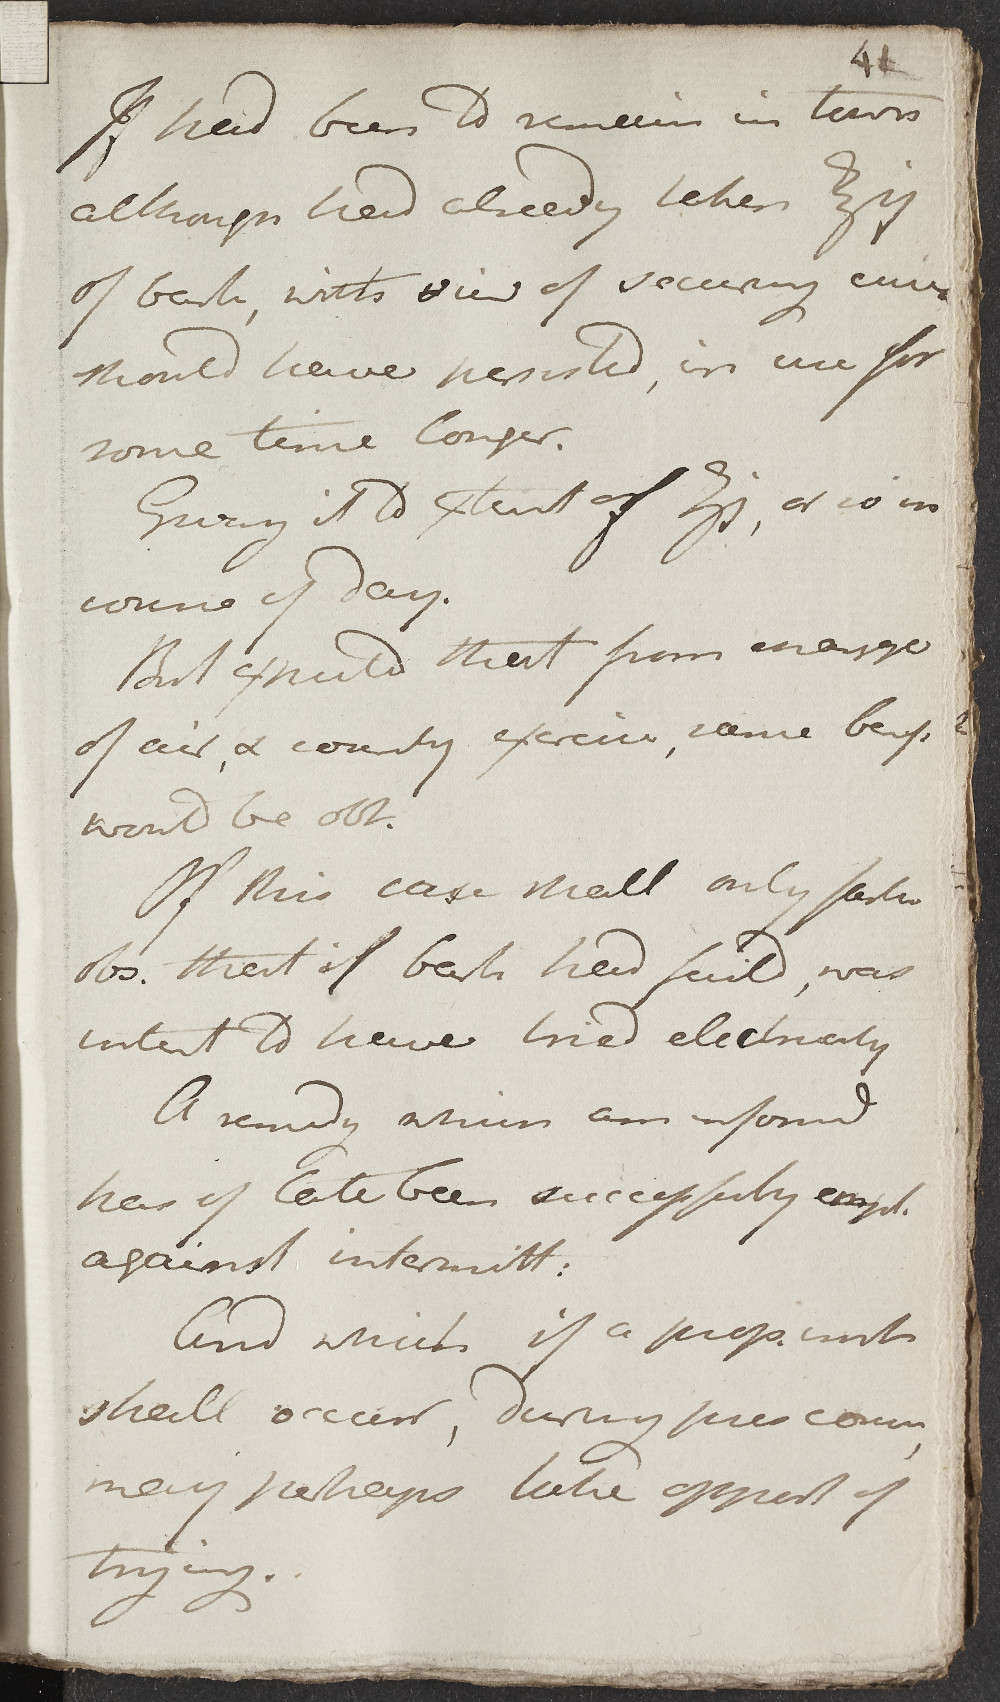 41
If had been to remain in town
although had already taken ℥ij
of bark, with view of securing cure
should have persisted, in use for
some time longer.
Giving it to extent of ℥j, or so in
course of day.
But expected that from change
of air, & country exercise, same benf.
would be obt.
If this case shall only farther
obs. that if bark had faild, was
intent to have tried electricity
A remedy which am informd
has of late been successfully empl.
against intermitt:
And which if a prop.
shall occurr, during pres course,
may perhaps take opport of
trying.